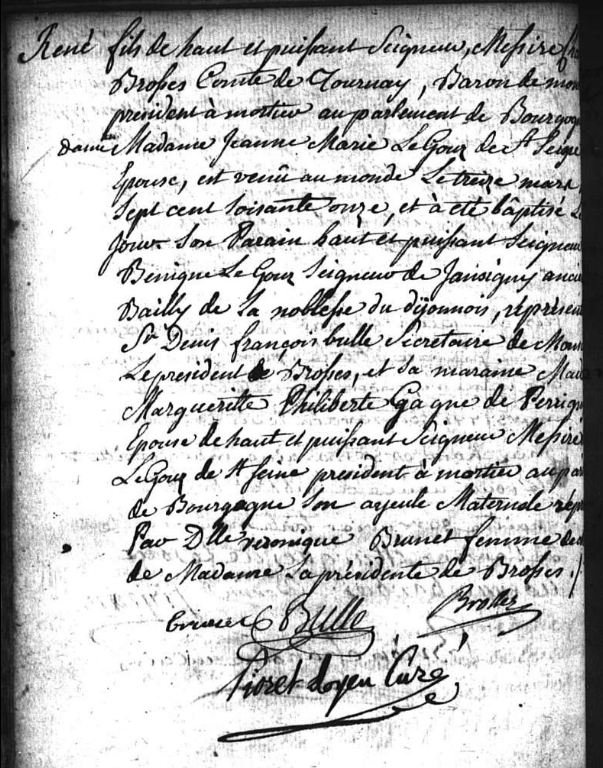 René fils de haut et puissant Seigneur, Messire
Brosses Comte de Tournay, Baron de mon
president à mortier au parlement de Bourgogn
dame Madame Jeanne Marie Le Gouz de St Seigne
Epouse, est venû au monde Le treize mars
Sept cent soisante onze, et à été bâptisé Le
jour. Son Parain haut et puissant Seigneur
Benigne Le Gouz Seigneur de Jansigny ancie
Bailly de la noblesse du dijonnois, répresen
Sr Denis françois bulle Secretaire de Mon
Le president de Brosses, et sa maraine Mad
Margueritte Philiberte Gagne de Perign
Epouse de haut et puissant Seigneur Messire
Le Gouz de St Seine president à mortier au par
de Bourgogne son ayeule Maternele rép
Par Dlle veronique Brunet femme de
de Madame la présidente de Brosses.
brunet Bulle Brosses
doyen Curé